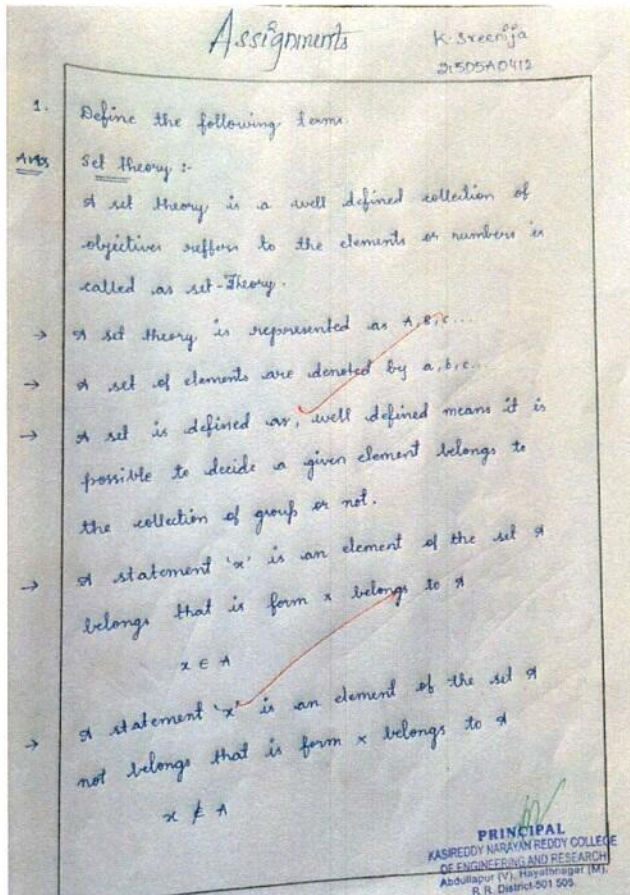 Assignments
K. Sreenija
21505A0412
1. Define the following terms.
Ans Set theory :-
A set theory is a well defined collection of
objectives reffers to the elements or numbers is
called as set-Theory.
→ A set theory is represented as A, B, c...
→ A set of elements are denoted by a, b, c...
→ A set is defined as, well defined means it is
possible to decide a given element belongs to
the collection of group or not.
→ A statement 'x' is an element of the set A
belongs that is form x belongs to A
x ∈ A
→ A statement 'x' is an element of the set A
not belongs that is form x belongs to A
x ∉ A
PRINCIPAL
KASIREDDY NARAYAN REDDY COLLEGE
OF ENGINEERING AND RESEARCH
Abdullapur (V), Hayathnagar (M),
R.R. District-501 505.